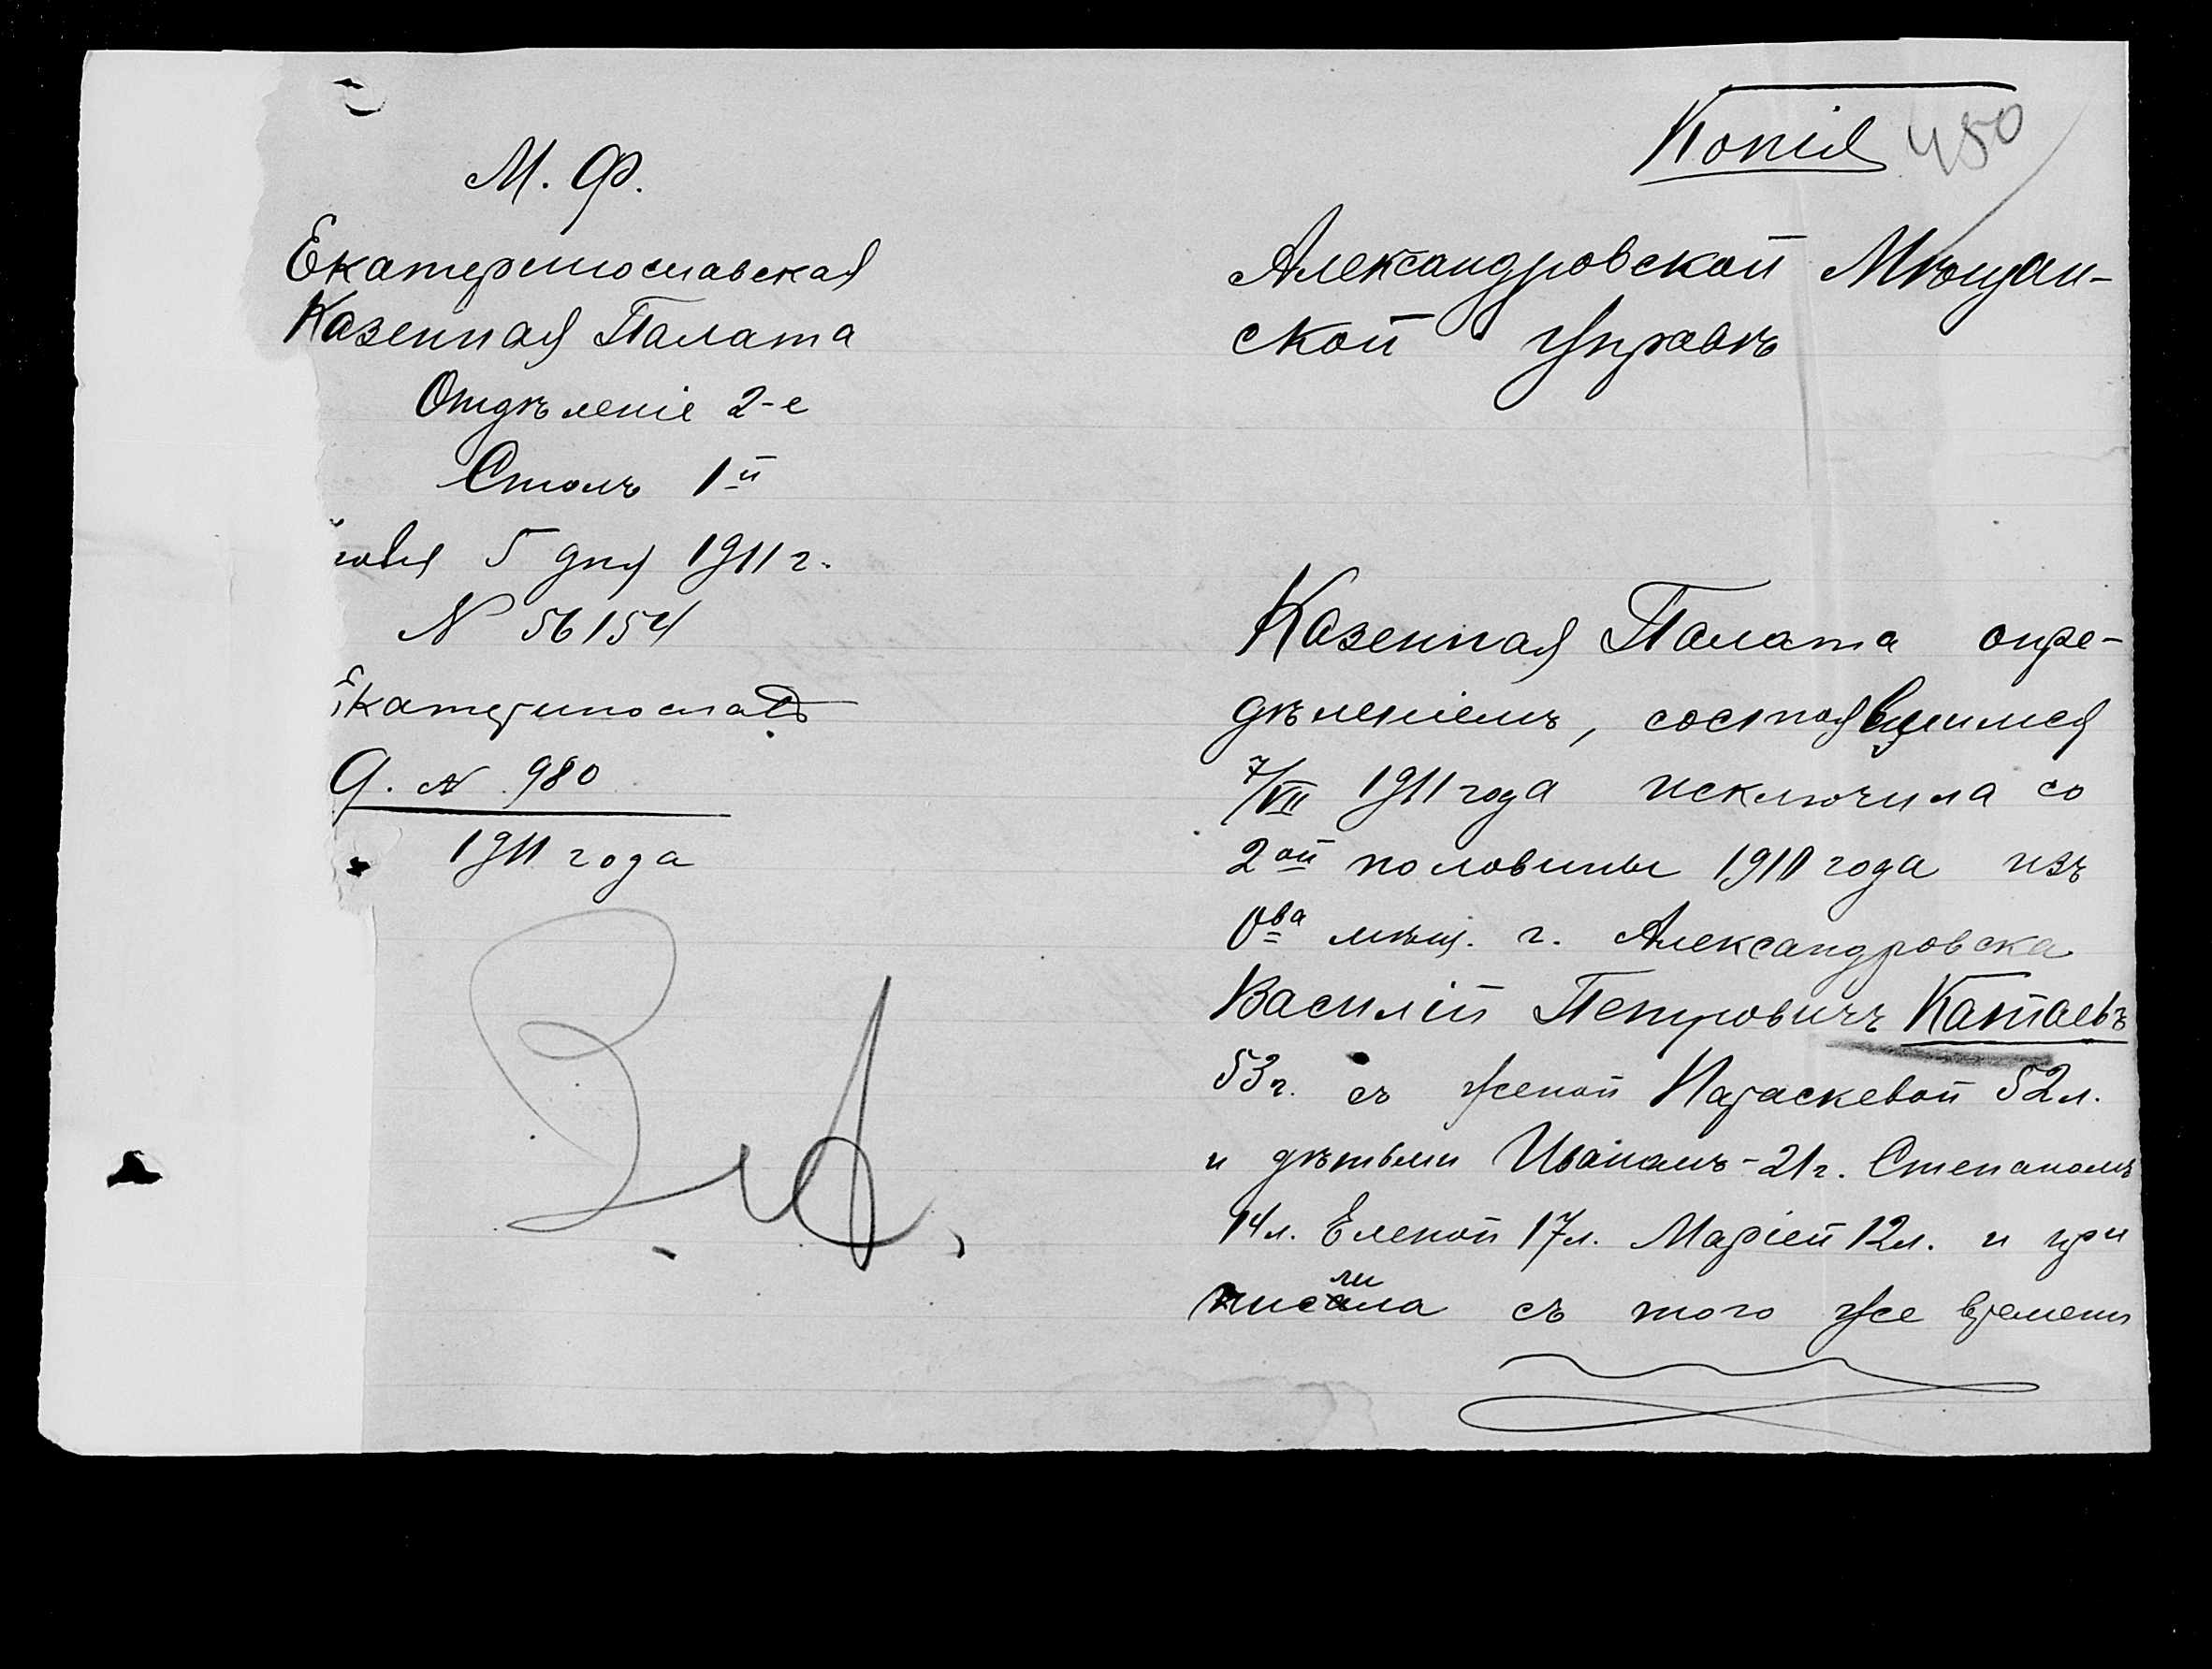 Копія 450
М. Ф.
Екатеринославская
Казенная Палата
Отдѣленіе 2-е
Столъ 1й
5 дня 1911 г.
N 56154
Екатеринославъ
Д. N 980
1911 года
Александровской Мѣщан-
ской Управѣ
Казенная Палата опре-
дѣленіемъ, состоявшимся
7/VII 1911 года исключила со
2ой половины 1910 года изъ
Oва мѣщ. г. Александровска
Василій Петровичъ Катаевъ
53 г. съ женой Параскевой 52 л.
и дѣтьми Иваномъ - 21 г. Степаномъ
14 л. Еленой 17 л. Маріей 12 л. и при
ли
писала съ того же времени